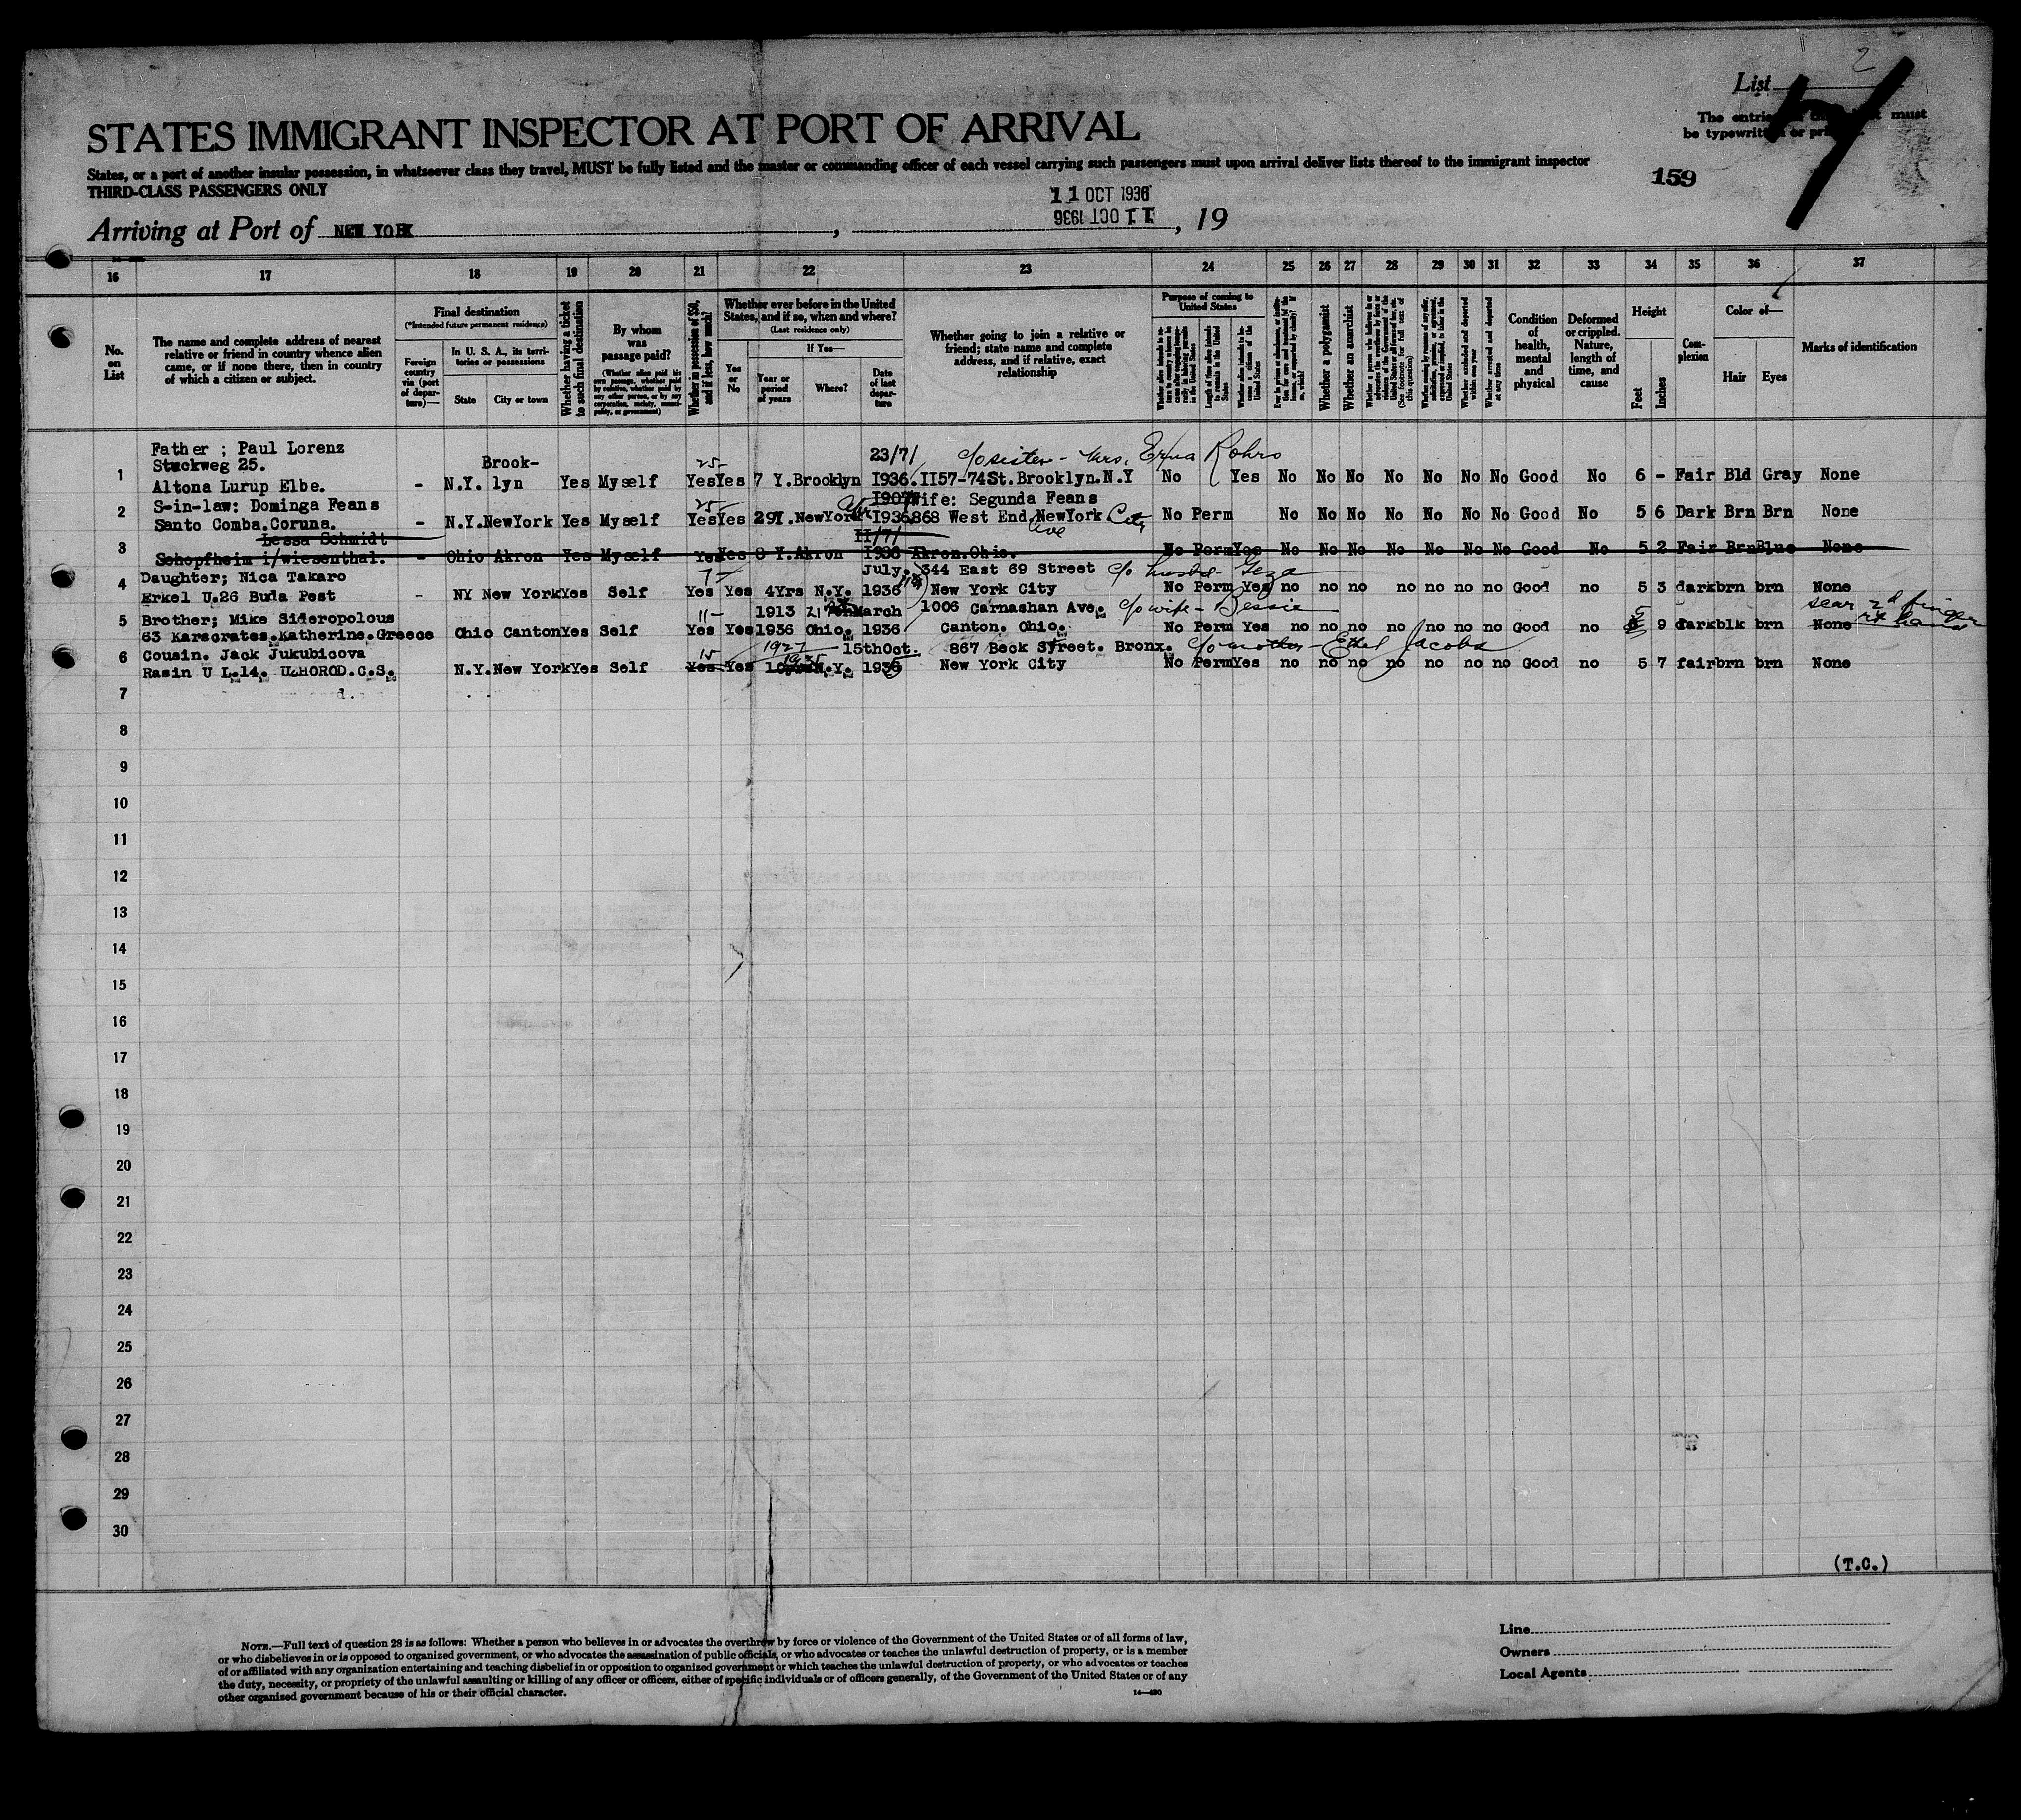 List 2
The entries on this sheet must
be typewritten or printed.
STATES IMMIGRANT INSPECTOR AT PORT OF ARRIVAL
States, or a port of another insular possession, in whatsoever class they travel, MUST be fully listed and the master or commanding officer of each vessel carrying such passengers must upon arrival deliver lists thereof to the immigrant inspector
THIRD-CLASS PASSENGERS ONLY
159
11 OCT 1936
11 OCT 1936
Arriving at Port of NEW YORK , , 19
16 17 18 19 20 21 22 23 24 25 26 27 28 29 30 31 32 33 34 35 36 37
No. on List
The name and complete address of nearest
relative or friend in country whence alien
came, or if none there, then in country
of which a citizen or subject.
Final destination
(*Intended future permanent residence)
Foreign country via (port of departure)—
In U. S. A., its territories or possessions
State
City or town
Whether having a ticket to such final destination
By whom was passage paid?
(Whether alien paid his own passage, whether paid by relative, whether paid by any other person, or by any corporation, society, municipality, or government)
Whether in possession of $50, and if less, how much?
Whether ever before in the United
States, and if so, when and where?
(Last residence only)
Yes or No
If Yes—
Year or period of years
Where?
Date of last departure
Whether going to join a relative or
friend; state name and complete
address, and if relative, exact
relationship
Purpose of coming to United States
Length of time alien intends to remain in the United States
Whether a polygamist
Whether an anarchist
Whether excluded and deported within one year
Whether arrested and deported at any time
Condition of health, mental and physical
Deformed or crippled. Nature, length of time, and cause
Height
Feet
Inches
Complexion
Color of—
Hair
Eyes
Marks of identification
Father ; Paul Lorenz 23/7/ c/o sister - Mrs. Erna Rohrs
Stuckweg 25. Brook- 25-
1 Altona Lurup Elbe. - N.Y. lyn Yes Myself Yes Yes 7 Y. Brooklyn I936. II57-74St.Brooklyn.N.Y No Yes No No No No No No No Good No 6 - Fair Bld Gray None
S-in-law: Dominga Feans 25- I907 Wife: Segunda Feans
2 Santo Comba.Coruna. - N.Y. NewYork Yes Myself Yes Yes 29Y. NewYork I936 868 West End NewYork City Ave No Perm No No No No No No No Good No 5 6 Dark Brn Brn None
Lessa Schmidt II/7/
3 Schopfheim i/wiesenthal. - Ohio Akron Yes Myself Yes Yes 8 Y. Akron I936 Akron.Ohio. No Perm Yes No No No No No No No Good No 5 2 Fair Brn Blue None
Daughter; Nica Takaro 7- July. 344 East 69 Street c/o husbd - Geza
4 Erkel U.26 Buda Pest - NY New York Yes Self Yes Yes 4Yrs N.Y. 1936 New York City No Perm Yes no no no no no no no Good no 5 3 dark brn brn None
Brother; Mike Sideropolous 11- 1913 March 1006 Carnashan Ave. c/o wife - Bessie
5 63 Karacrates.Katherine.Greece Ohio Canton Yes Self Yes Yes 1936 Ohio. 1936 Canton. Ohio. No Perm Yes no no no no no no no Good no 5 9 dark blk brn None scar 2d finger rt hand
Cousin. Jack Jukubicova 15 1927 1935 15thOct. 867 Beck Street. Bronx. c/o mother - Ethel Jacobs
6 Rasin U L.14. UZHOROD.C.S. N.Y. New York Yes Self Yes Yes N.Y. New York City No Perm Yes no no no no no no no Good no 5 7 fair brn brn None
7
8
9
10
11
12
13
14
15
16
17
18
19
20
21
22
23
24
25
26
27
28
29
30
(T.C.)
NOTE.—Full text of question 28 is as follows: Whether a person who believes in or advocates the overthrow by force or violence of the Government of the United States or of all forms of law,
or who disbelieves in or is opposed to organized government, or who advocates the assassination of public officials, or who advocates or teaches the unlawful destruction of property, or is a member
of or affiliated with any organization entertaining and teaching disbelief in or opposition to organized government or which teaches the unlawful destruction of property, or who advocates or teaches
the duty, necessity, or propriety of the unlawful assaulting or killing of any officer or officers, either of specific individuals or of officers generally, of the Government of the United States or of any
other organized government because of his or their official character.
14—480
Line
Owners
Local Agents